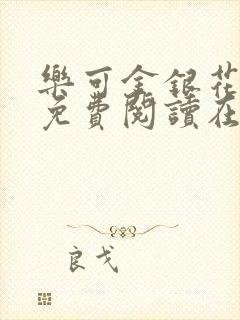 樂可金銀花
免費閱讀在
良戈